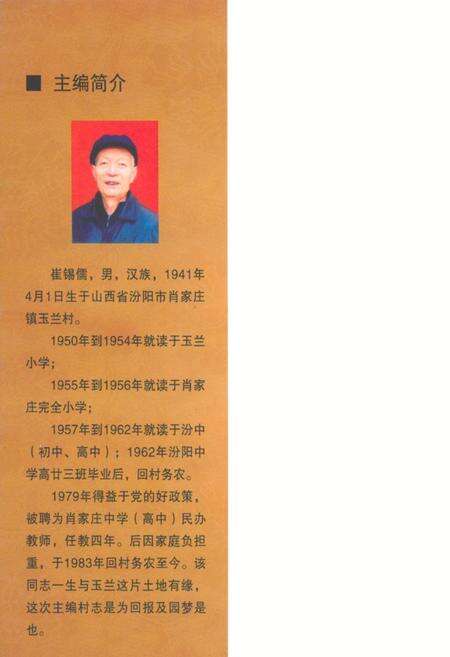 ■ 主编简介
崔锡儒，男，汉族，1941年
4月1日生于山西省汾阳市肖家庄
镇玉兰村。
1950年到1954年就读于玉兰
小学；
1955年到1956年就读于肖家
庄完全小学；
1957年到1962年就读于汾中
（初中、高中）；1962年汾阳中
学高廿三班毕业后，回村务农。
1979年得益于党的好政策，
被聘为肖家庄中学（高中）民办
教师，任教四年。后因家庭负担
重，于1983年回村务农至今。该
同志一生与玉兰这片土地有缘，
这次主编村志是为回报及园梦是
也。